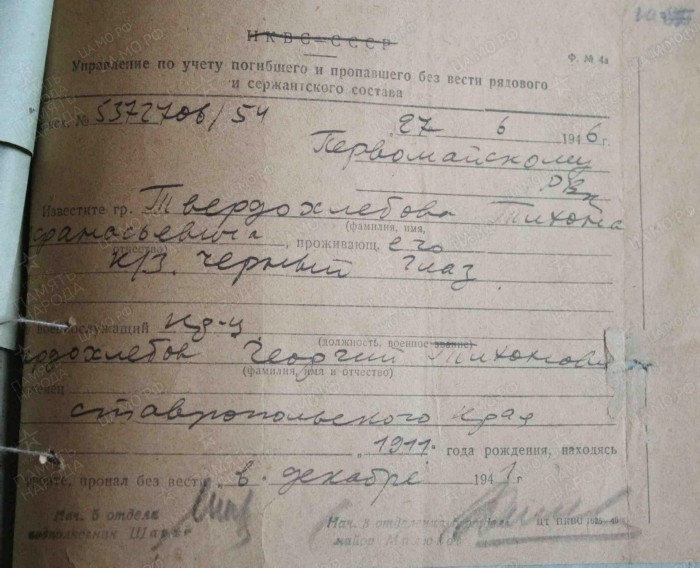 НКВС-СССР
Ф. № 4а
Управление по учету погибшего и пропавшего без вести рядового
и сержантского состава
исх. № 53727ов/54
„27 6 1946г.
Первомайскому
РВК
Известите гр. Твердохлебова Тихона
(фамилия, имя,
фанасьевича, проживающ его
отчество)
к/з. Черный Глаз
военнослужащий кр-ц
(должность, военное звание)
ердохлебов Георгий Тихонович
(фамилия, имя и отчество)
женец
Ставропольского края
„1911. года рождения, находясь
ронте, пропал без вести „в. декабре 1941г
Нач. 5 отдела
подполковник Шарыг
Нач. 3 отделения 5 отдела
майор Малюков